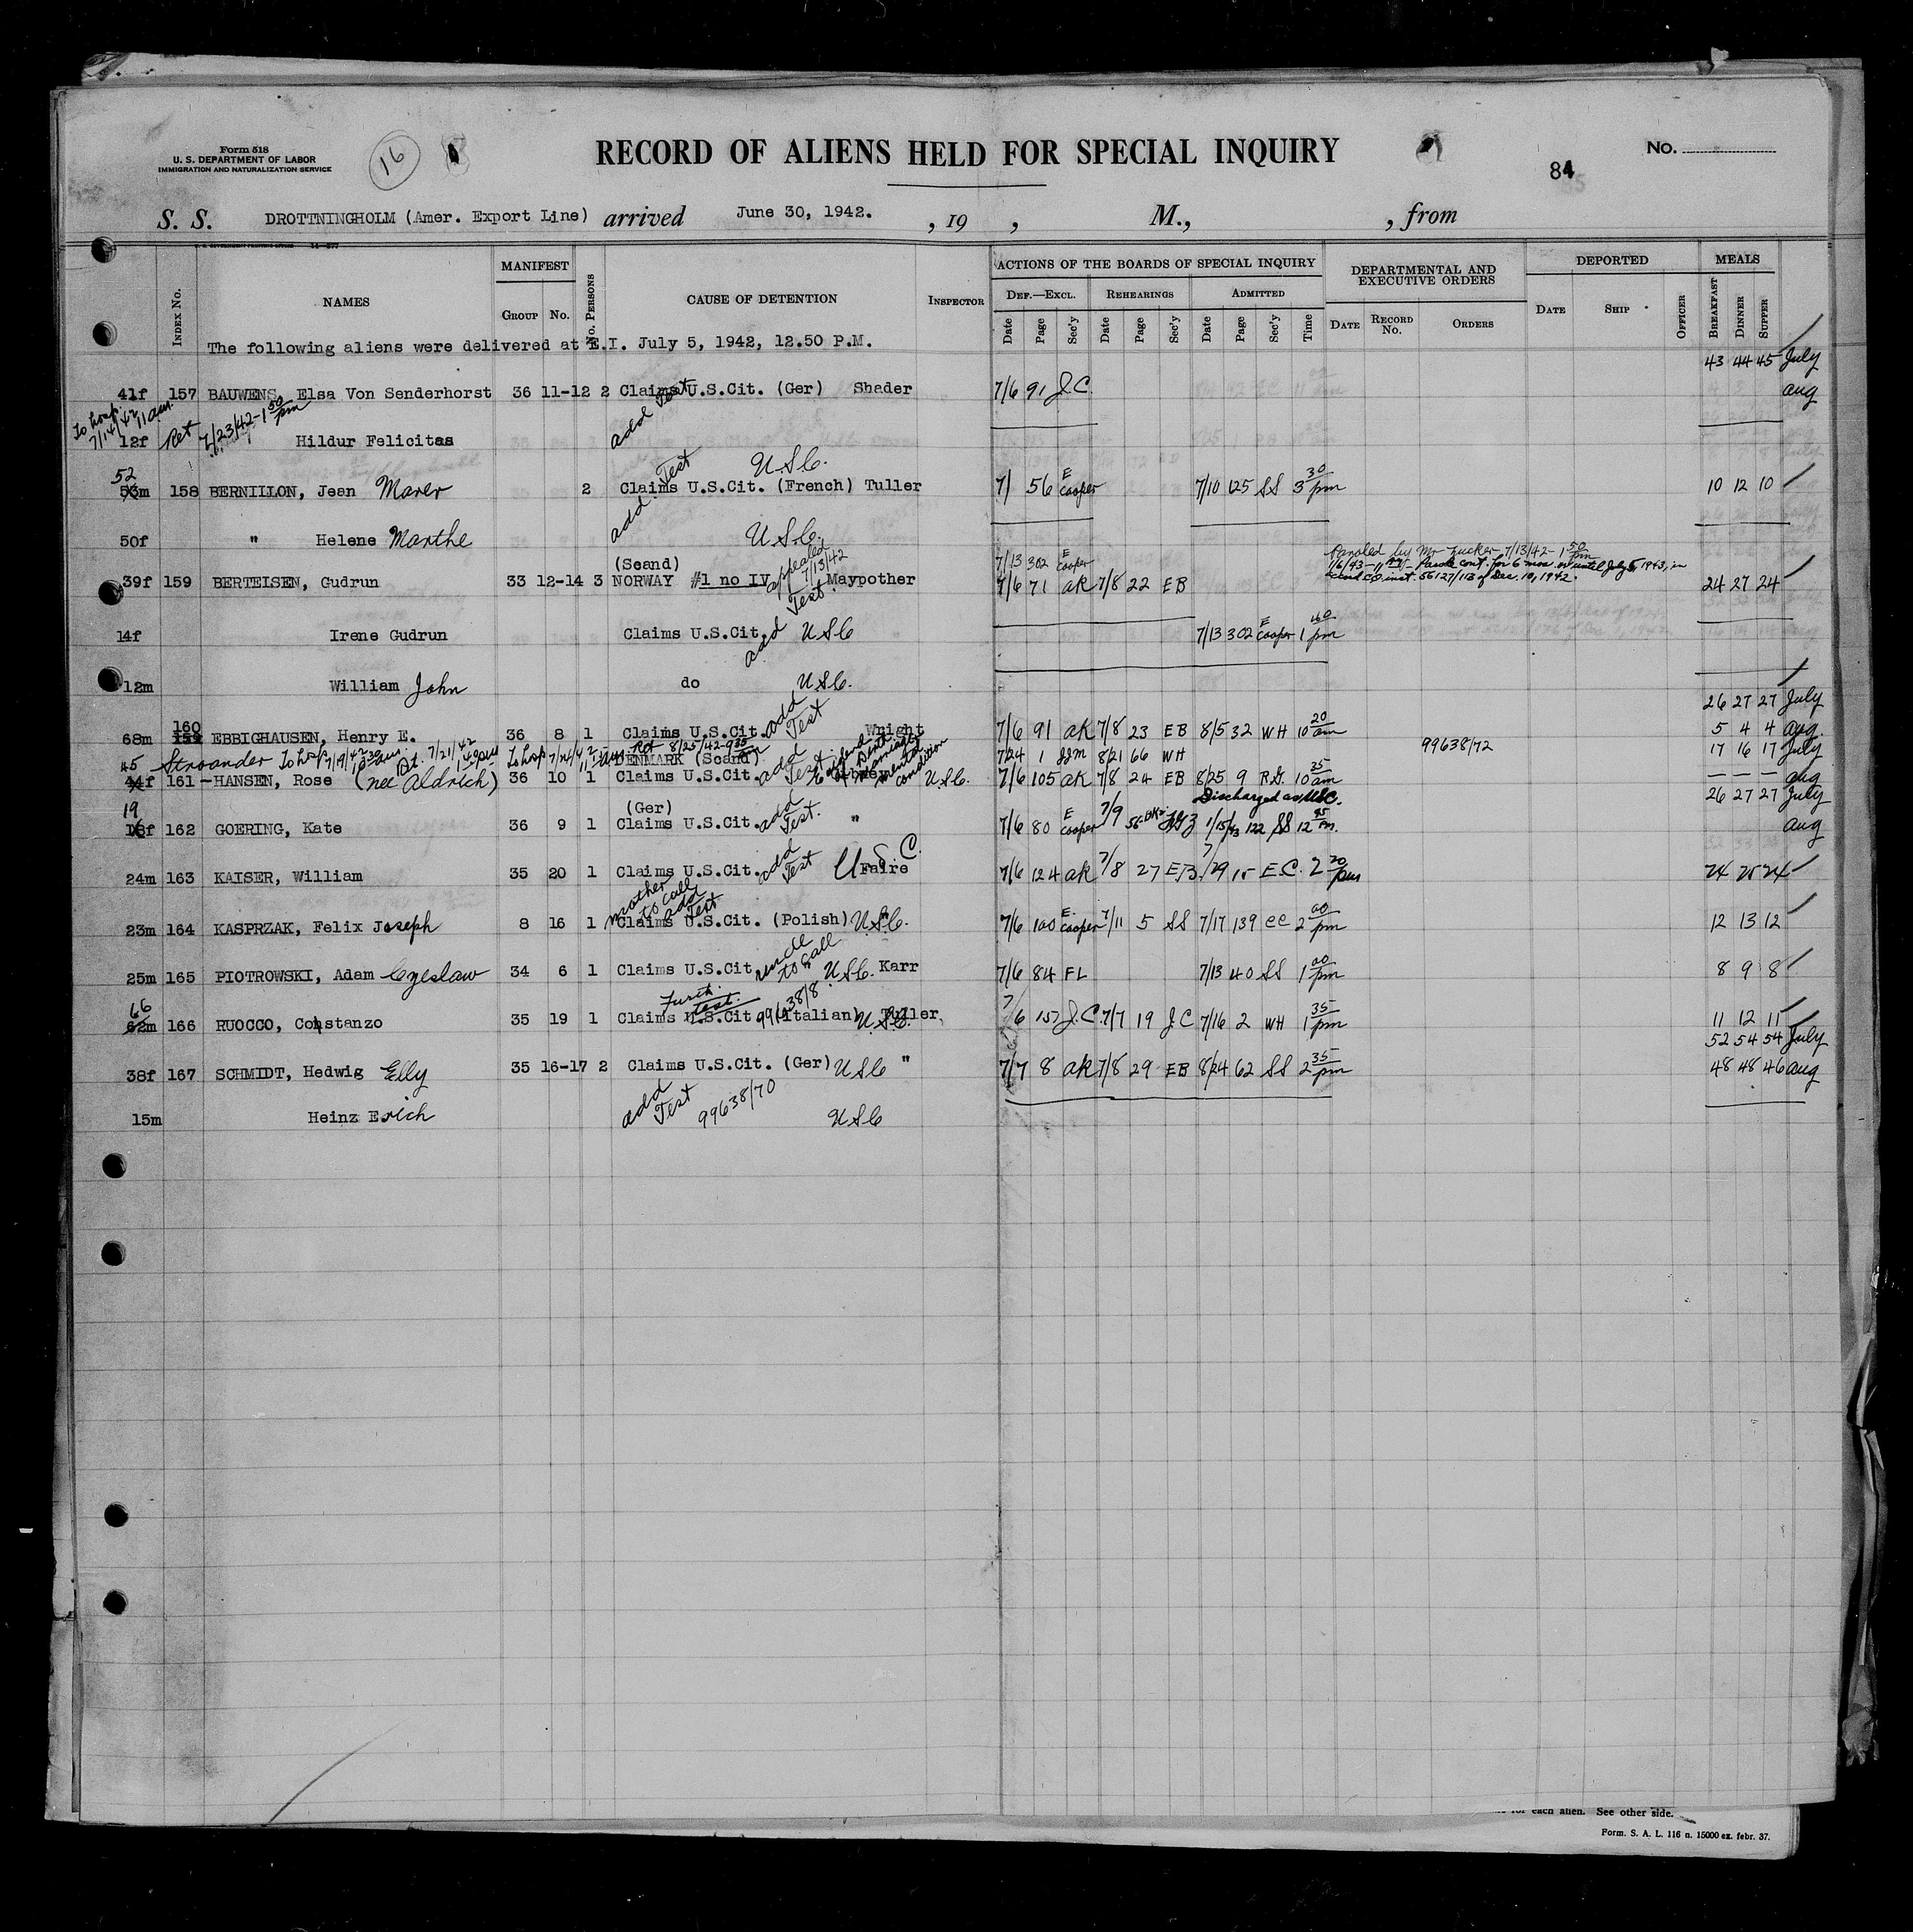 Form 518
U. S. DEPARTMENT OF LABOR
IMMIGRATION AND NATURALIZATION SERVICE
16
RECORD OF ALIENS HELD FOR SPECIAL INQUIRY
No.
84
S. S. DROTTNINGHOLM (Amer. Export Line) arrived June 30, 1942. , 19 , M., , from
Index No. NAMES MANIFEST Group No. No. Persons CAUSE OF DETENTION Inspector
ACTIONS OF THE BOARDS OF SPECIAL INQUIRY
Def.—Excl. Rehearings Admitted
Date Page Sec'y Date Page Sec'y Date Page Sec'y Time
DEPARTMENTAL AND EXECUTIVE ORDERS Date Record No. Orders
DEPORTED Date Ship Officer
MEALS Breakfast Dinner Supper
The following aliens were delivered at E.I. July 5, 1942, 12.50 P.M.
43 44 45 July
41f 157 BAUWENS, Elsa Von Senderhorst 36 11-12 2 Claims U.S.Cit. (Ger) Shader 7/6 91 J.C. aug
add Test
To hosp. 7/14/42 11 am. Ret 7/23/42-1 50 pm
12f Hildur Felicitas
add Test U.S.C.
52
53m 158 BERNILLON, Jean Marer 2 Claims U.S.Cit. (French) Tuller 7/ 56 E Cooper 7/10 125 SS 3 30 pm 10 12 10
50f " Helene Marthe U.S.C.
(Scand) appealed 7/13/42 7/13 302 E Cooper
Paroled by Mr Zucker 7/13/42-1 50 pm
7/6/43-11 - Parole cont. for 6 mos. or until July 5, 1943, in
accord CO inst. 56127/113 of Dec. 10, 1942.
39f 159 BERTEISEN, Gudrun 33 12-14 3 NORWAY #1 no IV Maypother 7/6 71 AK 7/8 22 EB 24 27 24
14f Irene Gudrun Claims U.S.Cit. add Test. USC 7/13 302 E Cooper 1 pm
12m William John do USC.
26 27 27 July
68m 160 EBBIGHAUSEN, Henry E. 36 8 1 Claims U.S.Cit. add Test Wright 7/6 91 AK 7/8 23 EB 8/5 32 WH 10 20 am 5 4 4 aug.
45 Stroander To hosp 7/19/42 Ret. 7/21/42 To hosp 7/24/42 Ret 8/25/42-9 35 am
DENMARK (Scand) 7/24 1 JJM 8/21 66 WH 99638/72 17 16 17 July
44f 161 HANSEN, Rose (nee Aldrich) 36 10 1 Claims U.S.Cit. add Test. U.S.C. 7/6 105 AK 7/8 24 EB 8/25 9 R.G. 10 35 am — — — aug
(Ger) Discharged as USC. 26 27 27 July
19
18f 162 GOERING, Kate 36 9 1 Claims U.S.Cit. add Test. " 7/6 80 E Cooper 7/9 56 1/15/43 122 SS 12 pm. aug
24m 163 KAISER, William 35 20 1 Claims U.S.Cit. add Test U.S.C. Faire 7/6 124 AK 7/8 27 EB 7/29 15 E.C. 2 20 pm 24 25 24
mother to call add Test
23m 164 KASPRZAK, Felix Joseph 8 16 1 Claims U.S.Cit. (Polish) U.S.C. " 7/6 100 E. Cooper 7/11 5 SS 7/17 139 CC 2 00 pm 12 13 12
25m 165 PIOTROWSKI, Adam Czeslaw 34 6 1 Claims U.S.Cit. uncle to call U.S.C. Karr 7/6 84 FL 7/13 40 SS 1 00 pm 8 9 8
furth. test. 99638/8
66
62m 166 RUOCCO, Constanzo 35 19 1 Claims U.S.Cit (Italian) U.S.C. Tuller 7/6 157 J.C. 7/7 19 J.C 7/16 2 WH 1 35 pm 11 12 11
52 54 54 July
38f 167 SCHMIDT, Hedwig Elly 35 16-17 2 Claims U.S.Cit. (Ger) USC " 7/7 8 AK 7/8 29 EB 8/24 62 SS 2 35 pm 48 48 46 aug
add Test 99638/70
15m Heinz Erich USC
for each alien. See other side.
Form. S. A. L. 116 n. 15000 ex. febr. 37.